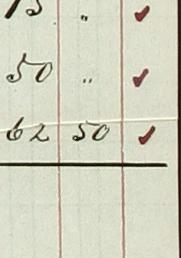 15 " ✓
50 " ✓
62 50 ✓